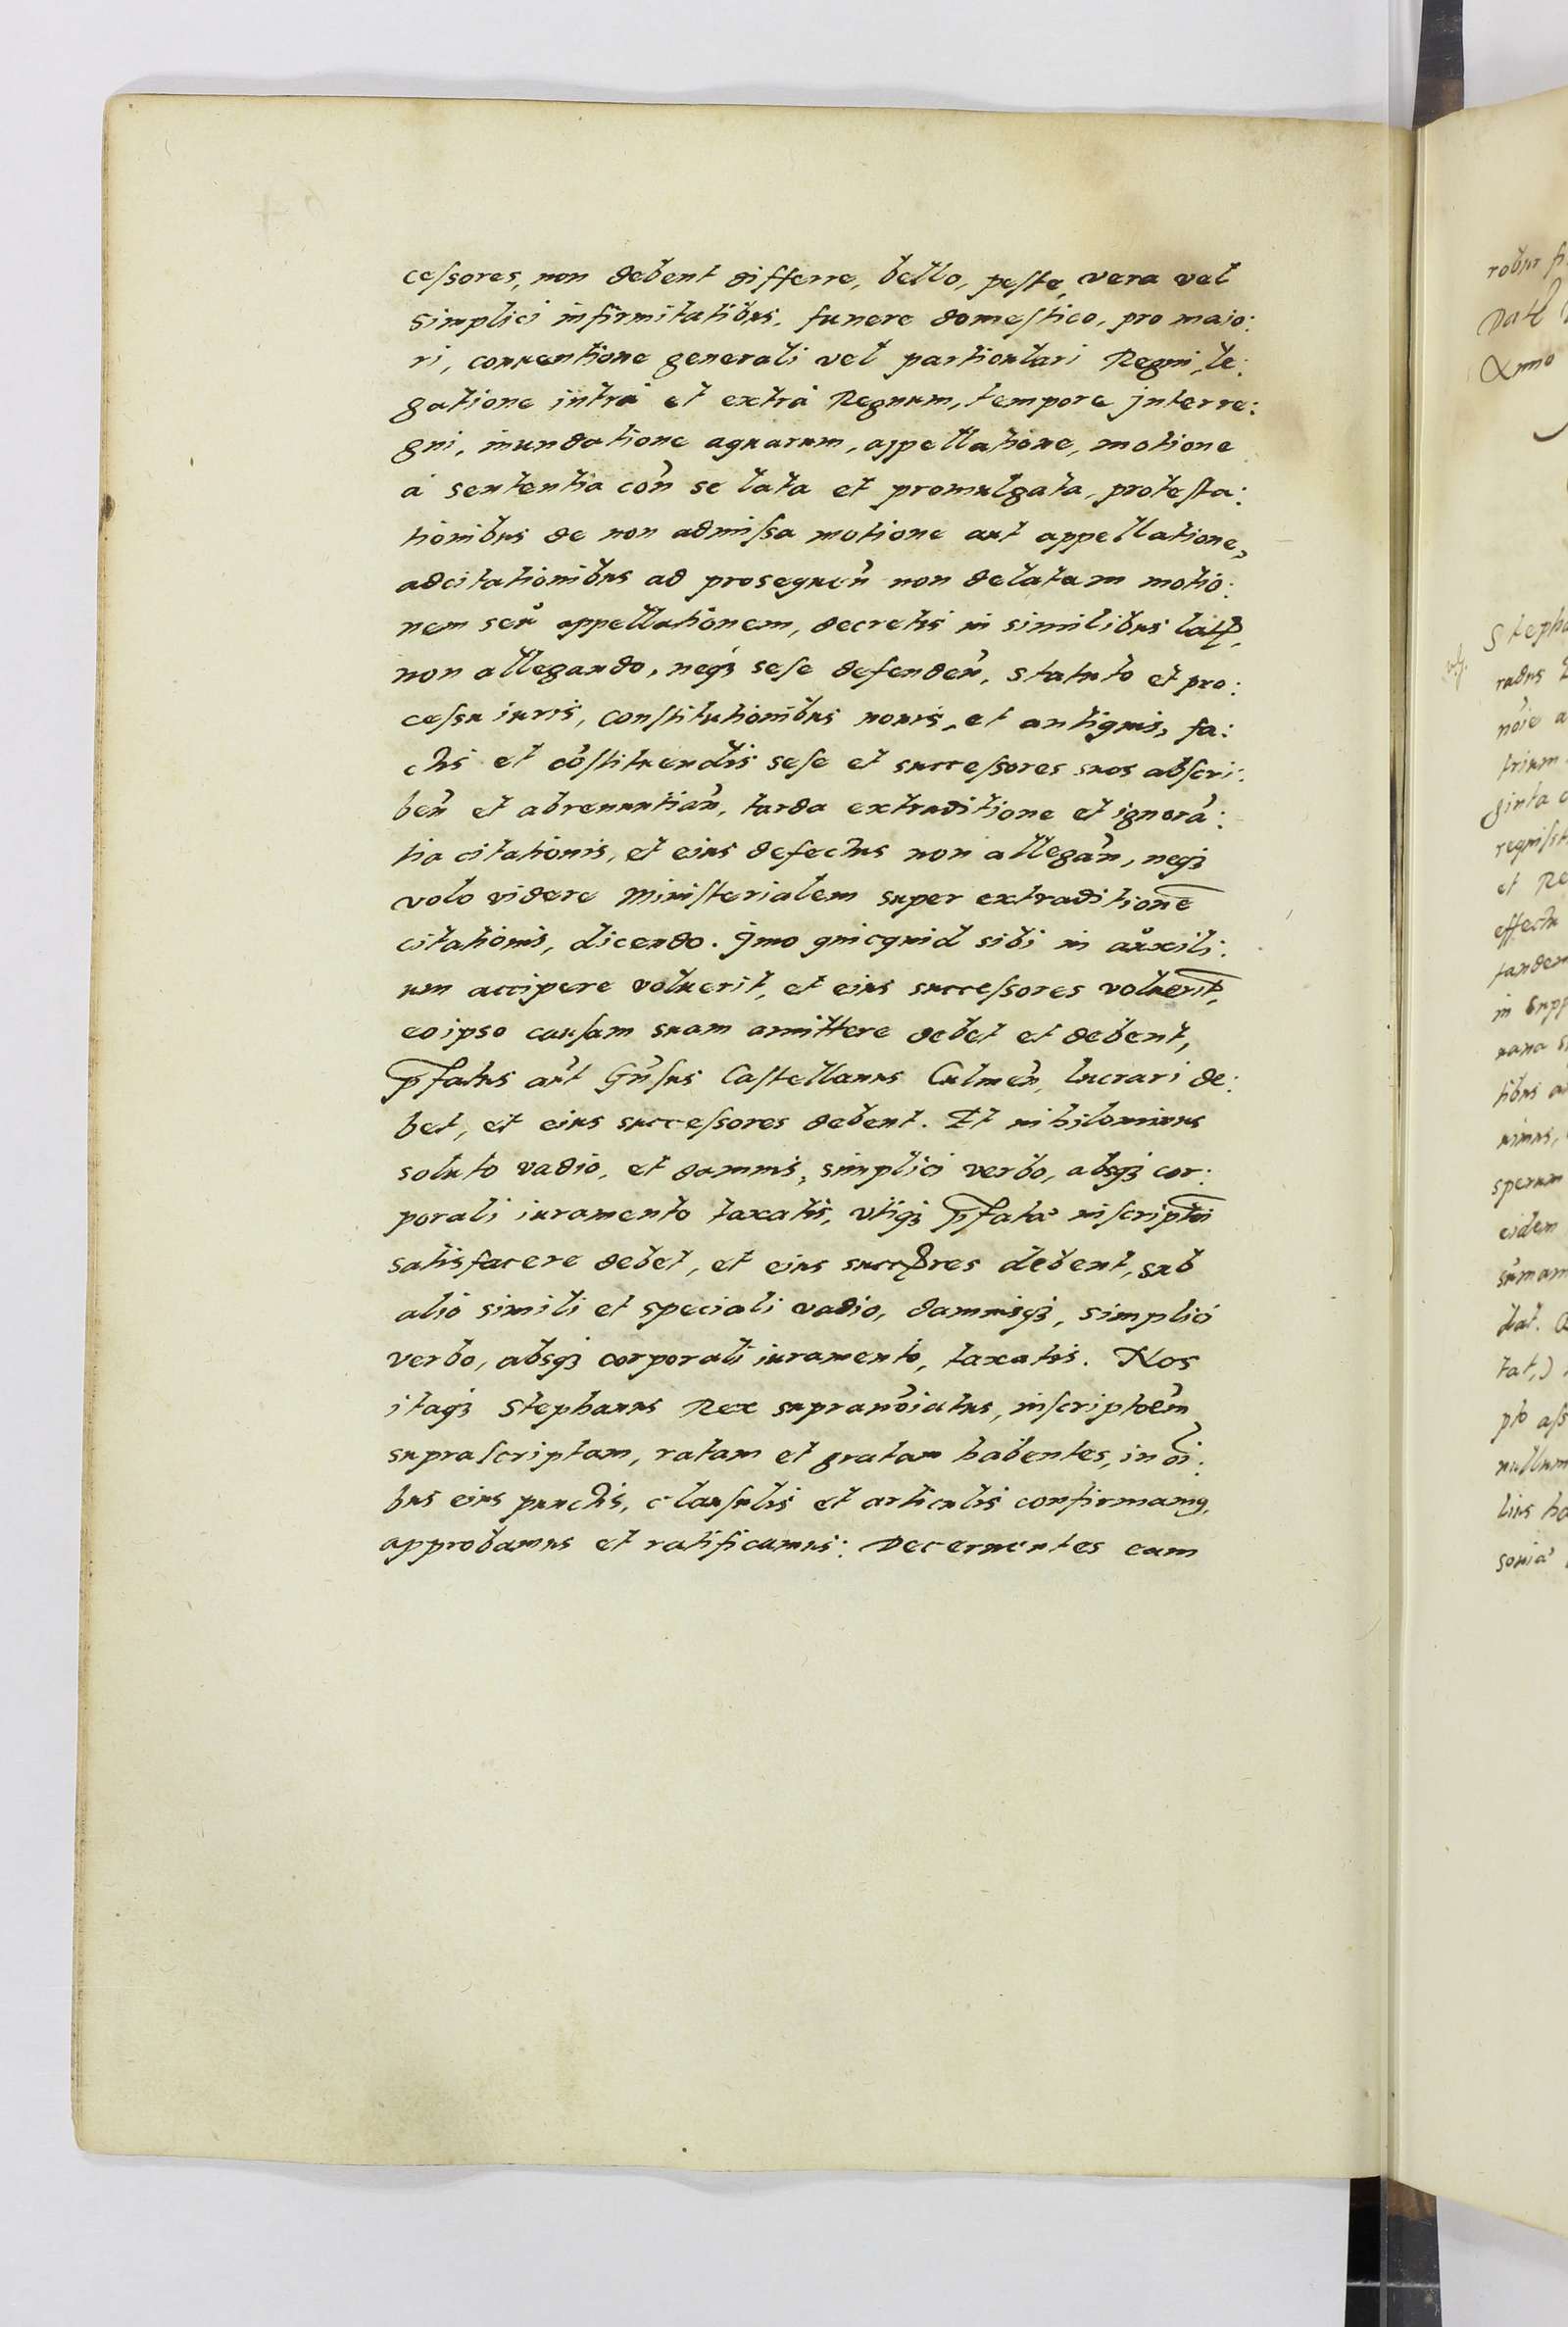 ceſsores, non debent differre, bello, peſte, vera vel
simplici infirmitatibus, funere domeſtico, pro maio:
ri, conuentione generali vel particulari Regni, le:
gatione intrà et extrà Regnum, tempore interre:
gni, inundatione aquarum, appellatione, motione
à sententia con̄ se lata et promulgata, proteſta:
tionibus de non admiſsa motione aut appellatione,
adcitationibus ad prosequen̄ non delatam motio:
nem seu appellationem, decretis in similibus latis,
non allegando, neqꝫ seſe defenden̄, statuto et pro:
ceſsu iuris, conſtitutionibus nouis, et antiquis, fa:
ctis et cōſtituendis seſe et succeſsores suos abſcri:
ben̄ et abrenuntian̄, tarda extraditione et ignorā:
tia citationis, et eius defectus non allegan̄, neqꝫ
volo videre Miniſterialem super extraditionē
citationis, dicendo. Imo quicquid sibi in auxili:
um accipere voluerit, et eius succeſsores voluerīt,
eoipso cauſam suam amittere debet et debent,
p̄fatus aūt Gn̄ſus Caſtellanus Culmen̄, lucrari de:
bet, et eius succeſsores debent. Et nihilominus
soluto vadio, et damnis, simplici verbo, absqꝫ cor:
porali iuramento taxatis, vtiqꝫ p̄fatæ inſcriptōi
satisfacere debet, et eius succꝭres debent, sub
alio simili et speciali vadio, damnisqꝫ, simplici
verbo, absqꝫ corporali iuramento, taxatis. Nos
itaqꝫ Stephanus Rex supranōiatus, inſcriptōem̄
supraſcriptam, ratam et gratam habentes, in oī:
bus eius punctis, clauſulis et articulis confirmamꝯ,
approbamus et ratificamus: Decernentes eam